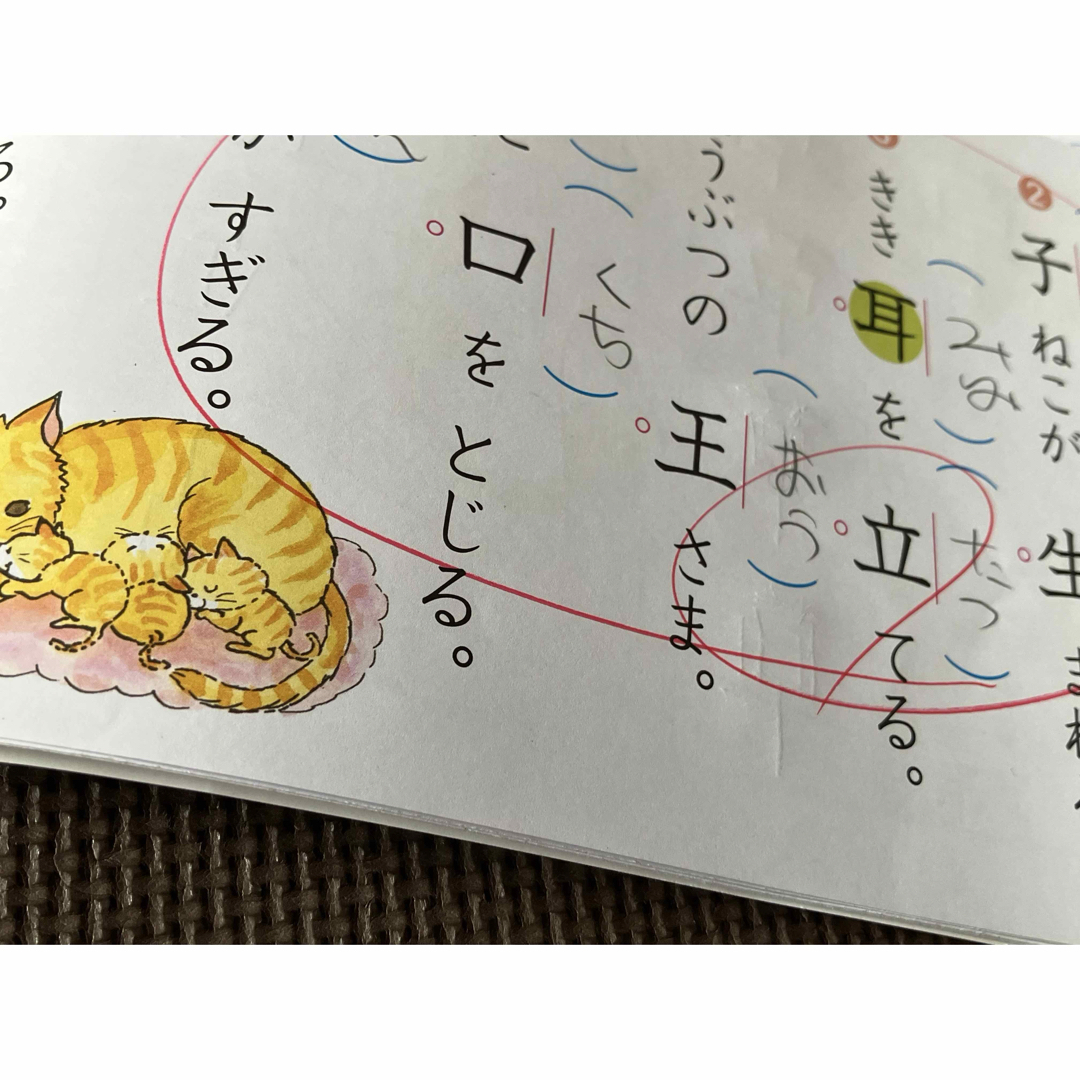 ②
子ねこが生まれ
きき耳を立てる。
(みみ)
(たつ)
うぶつの王さま。
(おう)
口をとじる。
(くち)
すぎる。
る。